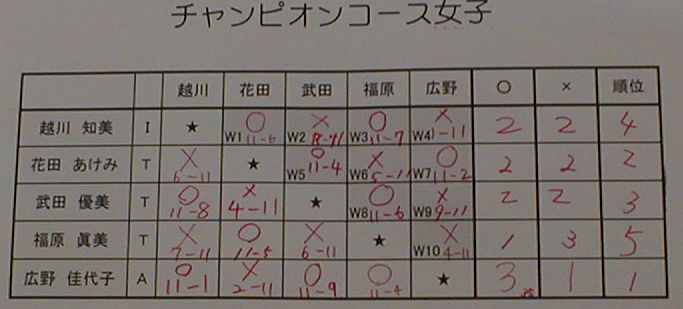 チャンピオンコース女子
越川 花田 武田 福原 広野 ○ × 順位
越川 知美 I ★ ○ W1 11-6 × W2 8-11 ○ W3 11-7 × W4 1-11 2 2 4
花田 あけみ T × 6-11 ★ ○ W5 11-4 × W6 5-11 ○ W7 11-2 2 2 2
武田 優美 T ○ 11-8 × 4-11 ★ ○ W8 11-6 × W9 9-11 2 2 3
福原 眞美 T × 7-11 ○ 11-5 × 6-11 ★ × W10 4-11 1 3 5
広野 佳代子 A ○ 11-1 × 2-11 ○ 11-9 ○ 11-4 ★ 3 1 1